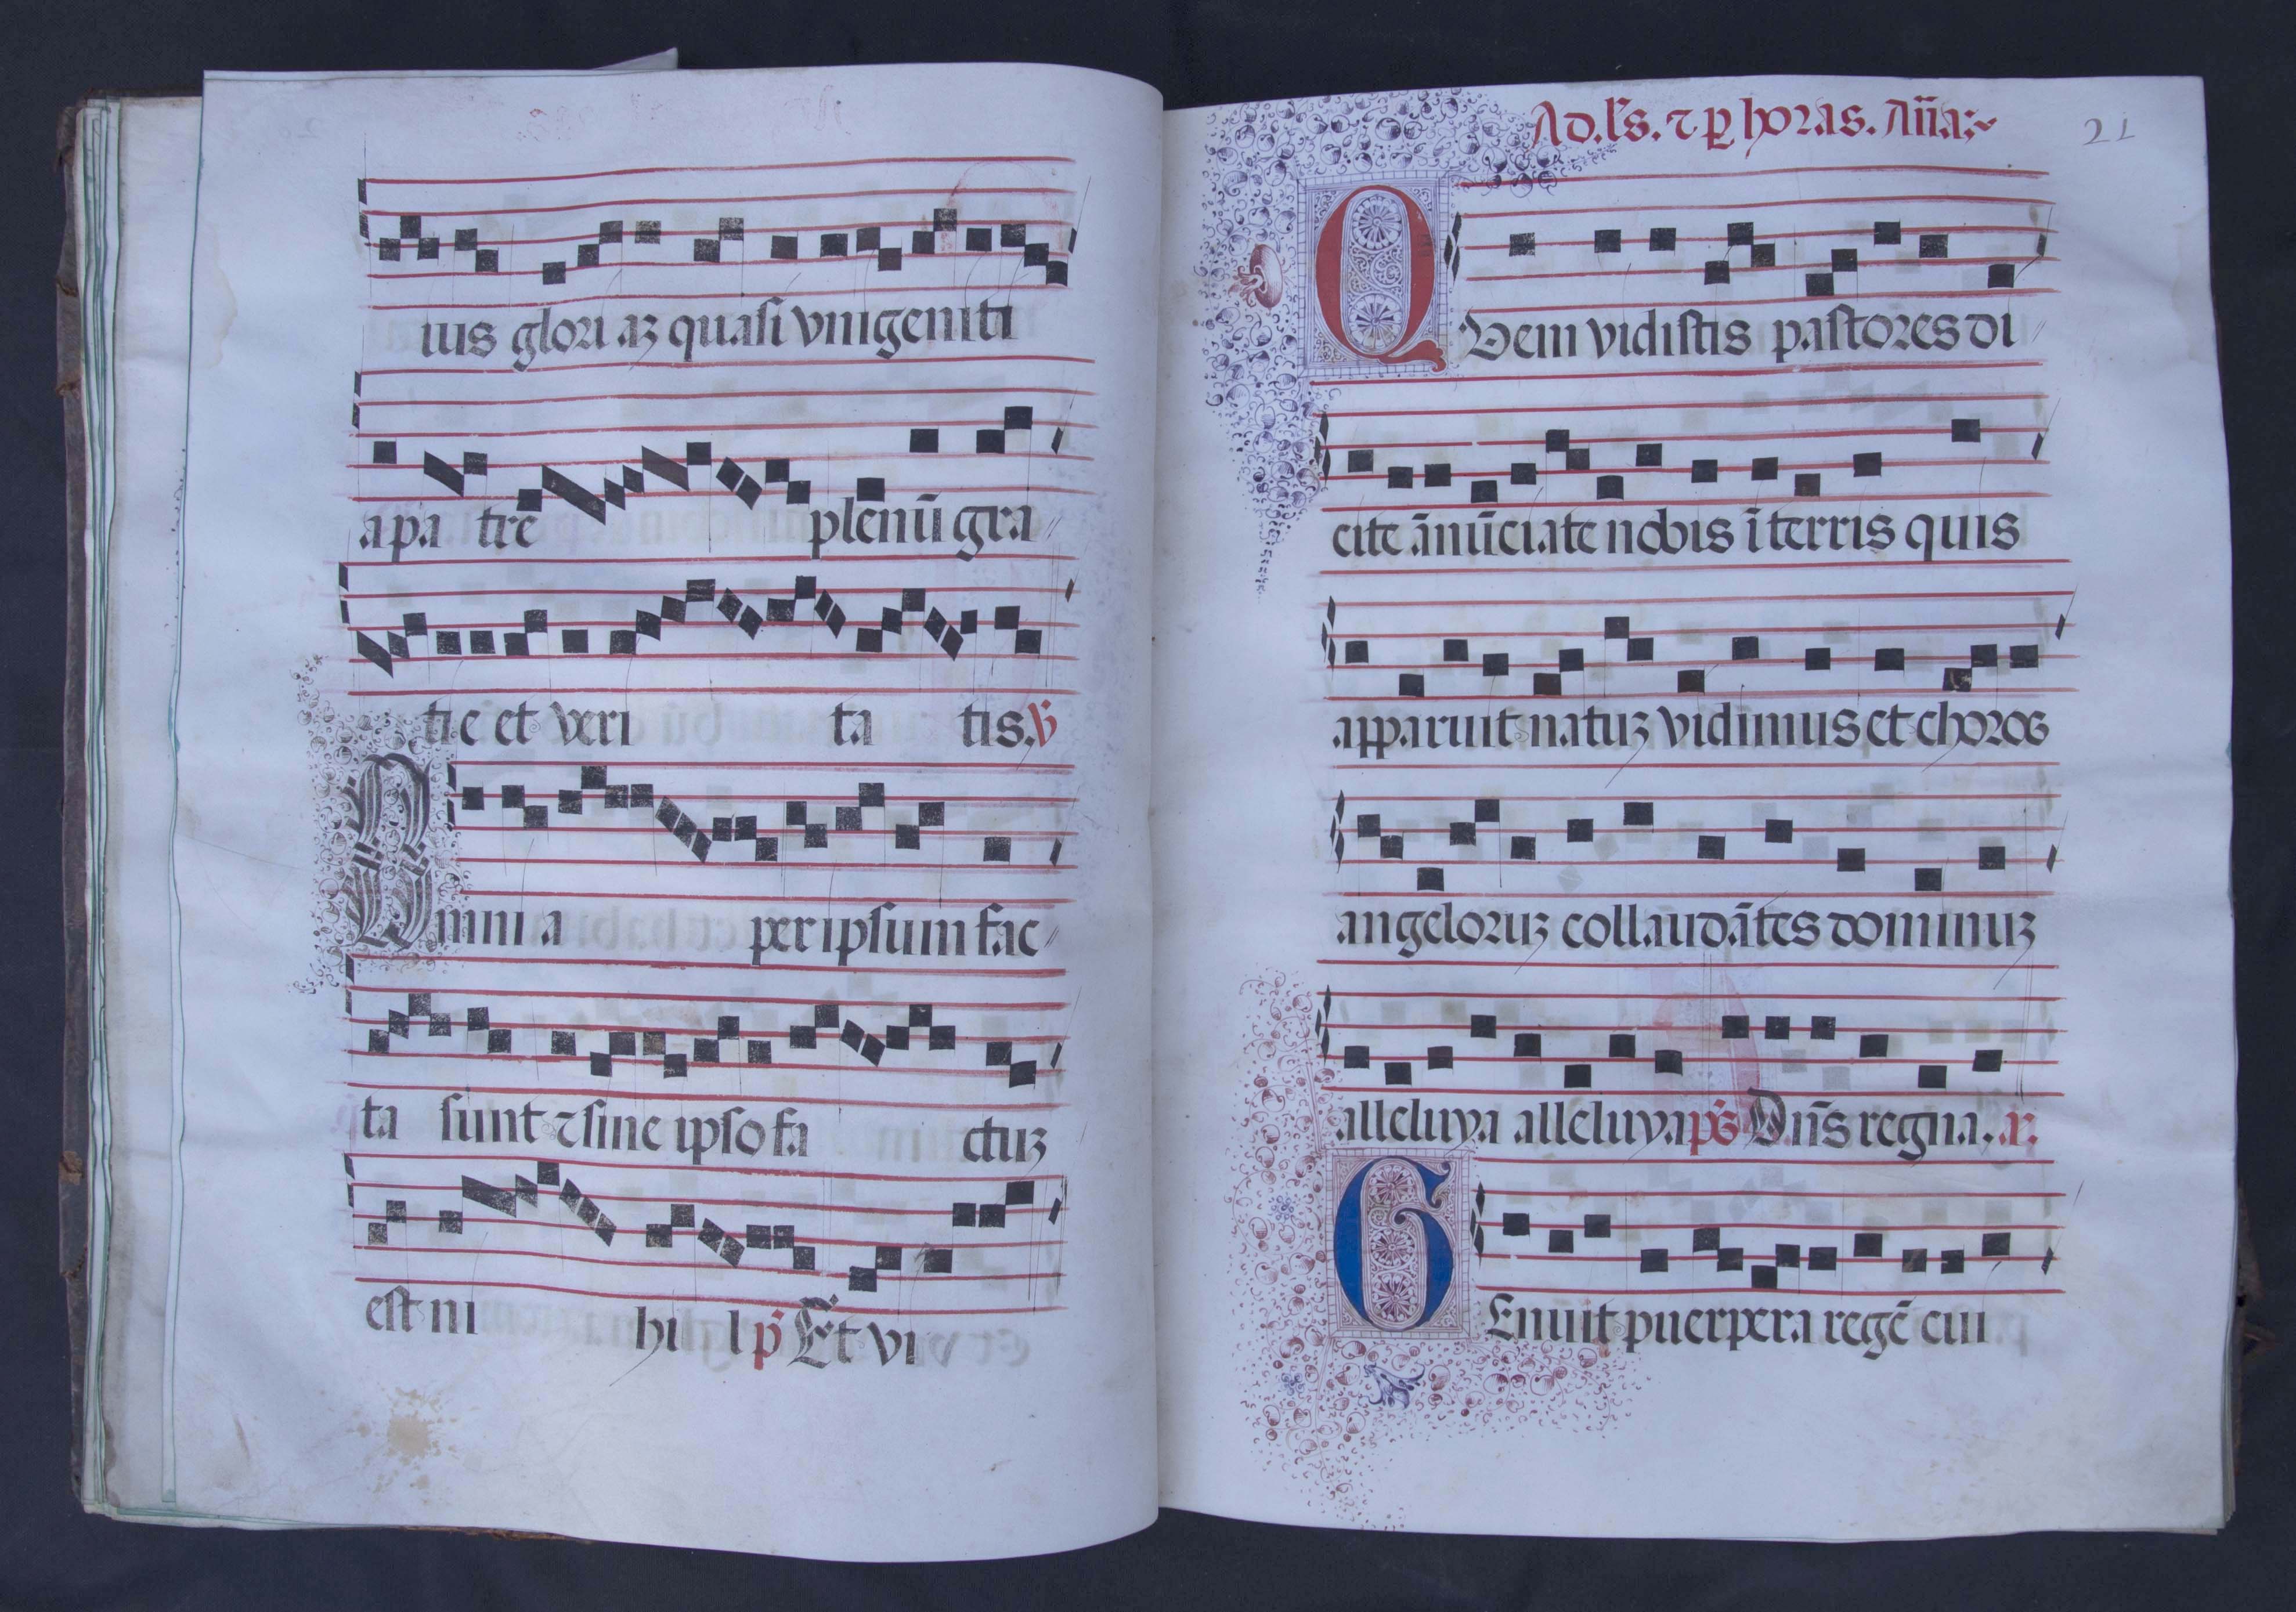 ius glori aꝫ quasi vnigeniti
a pa tre plenū gra
tie et veri ta tis. ℣
Omni a per ipsum fac
ta sunt ⁊ sine ipso fa ctuꝫ
est ni hi l p̄s Et vi
Ad. l's. ⁊ ꝑ horas. Añã:~
21
QVem vidistis pastores di
cite ānūciate nobis ī terris quis
apparuit natuꝫ vidimus et choros
angeloruꝫ collaudātes dominuꝫ
alleluya alleluya p̄s Dñs regna. a.
GEnuit puerpera regē cui